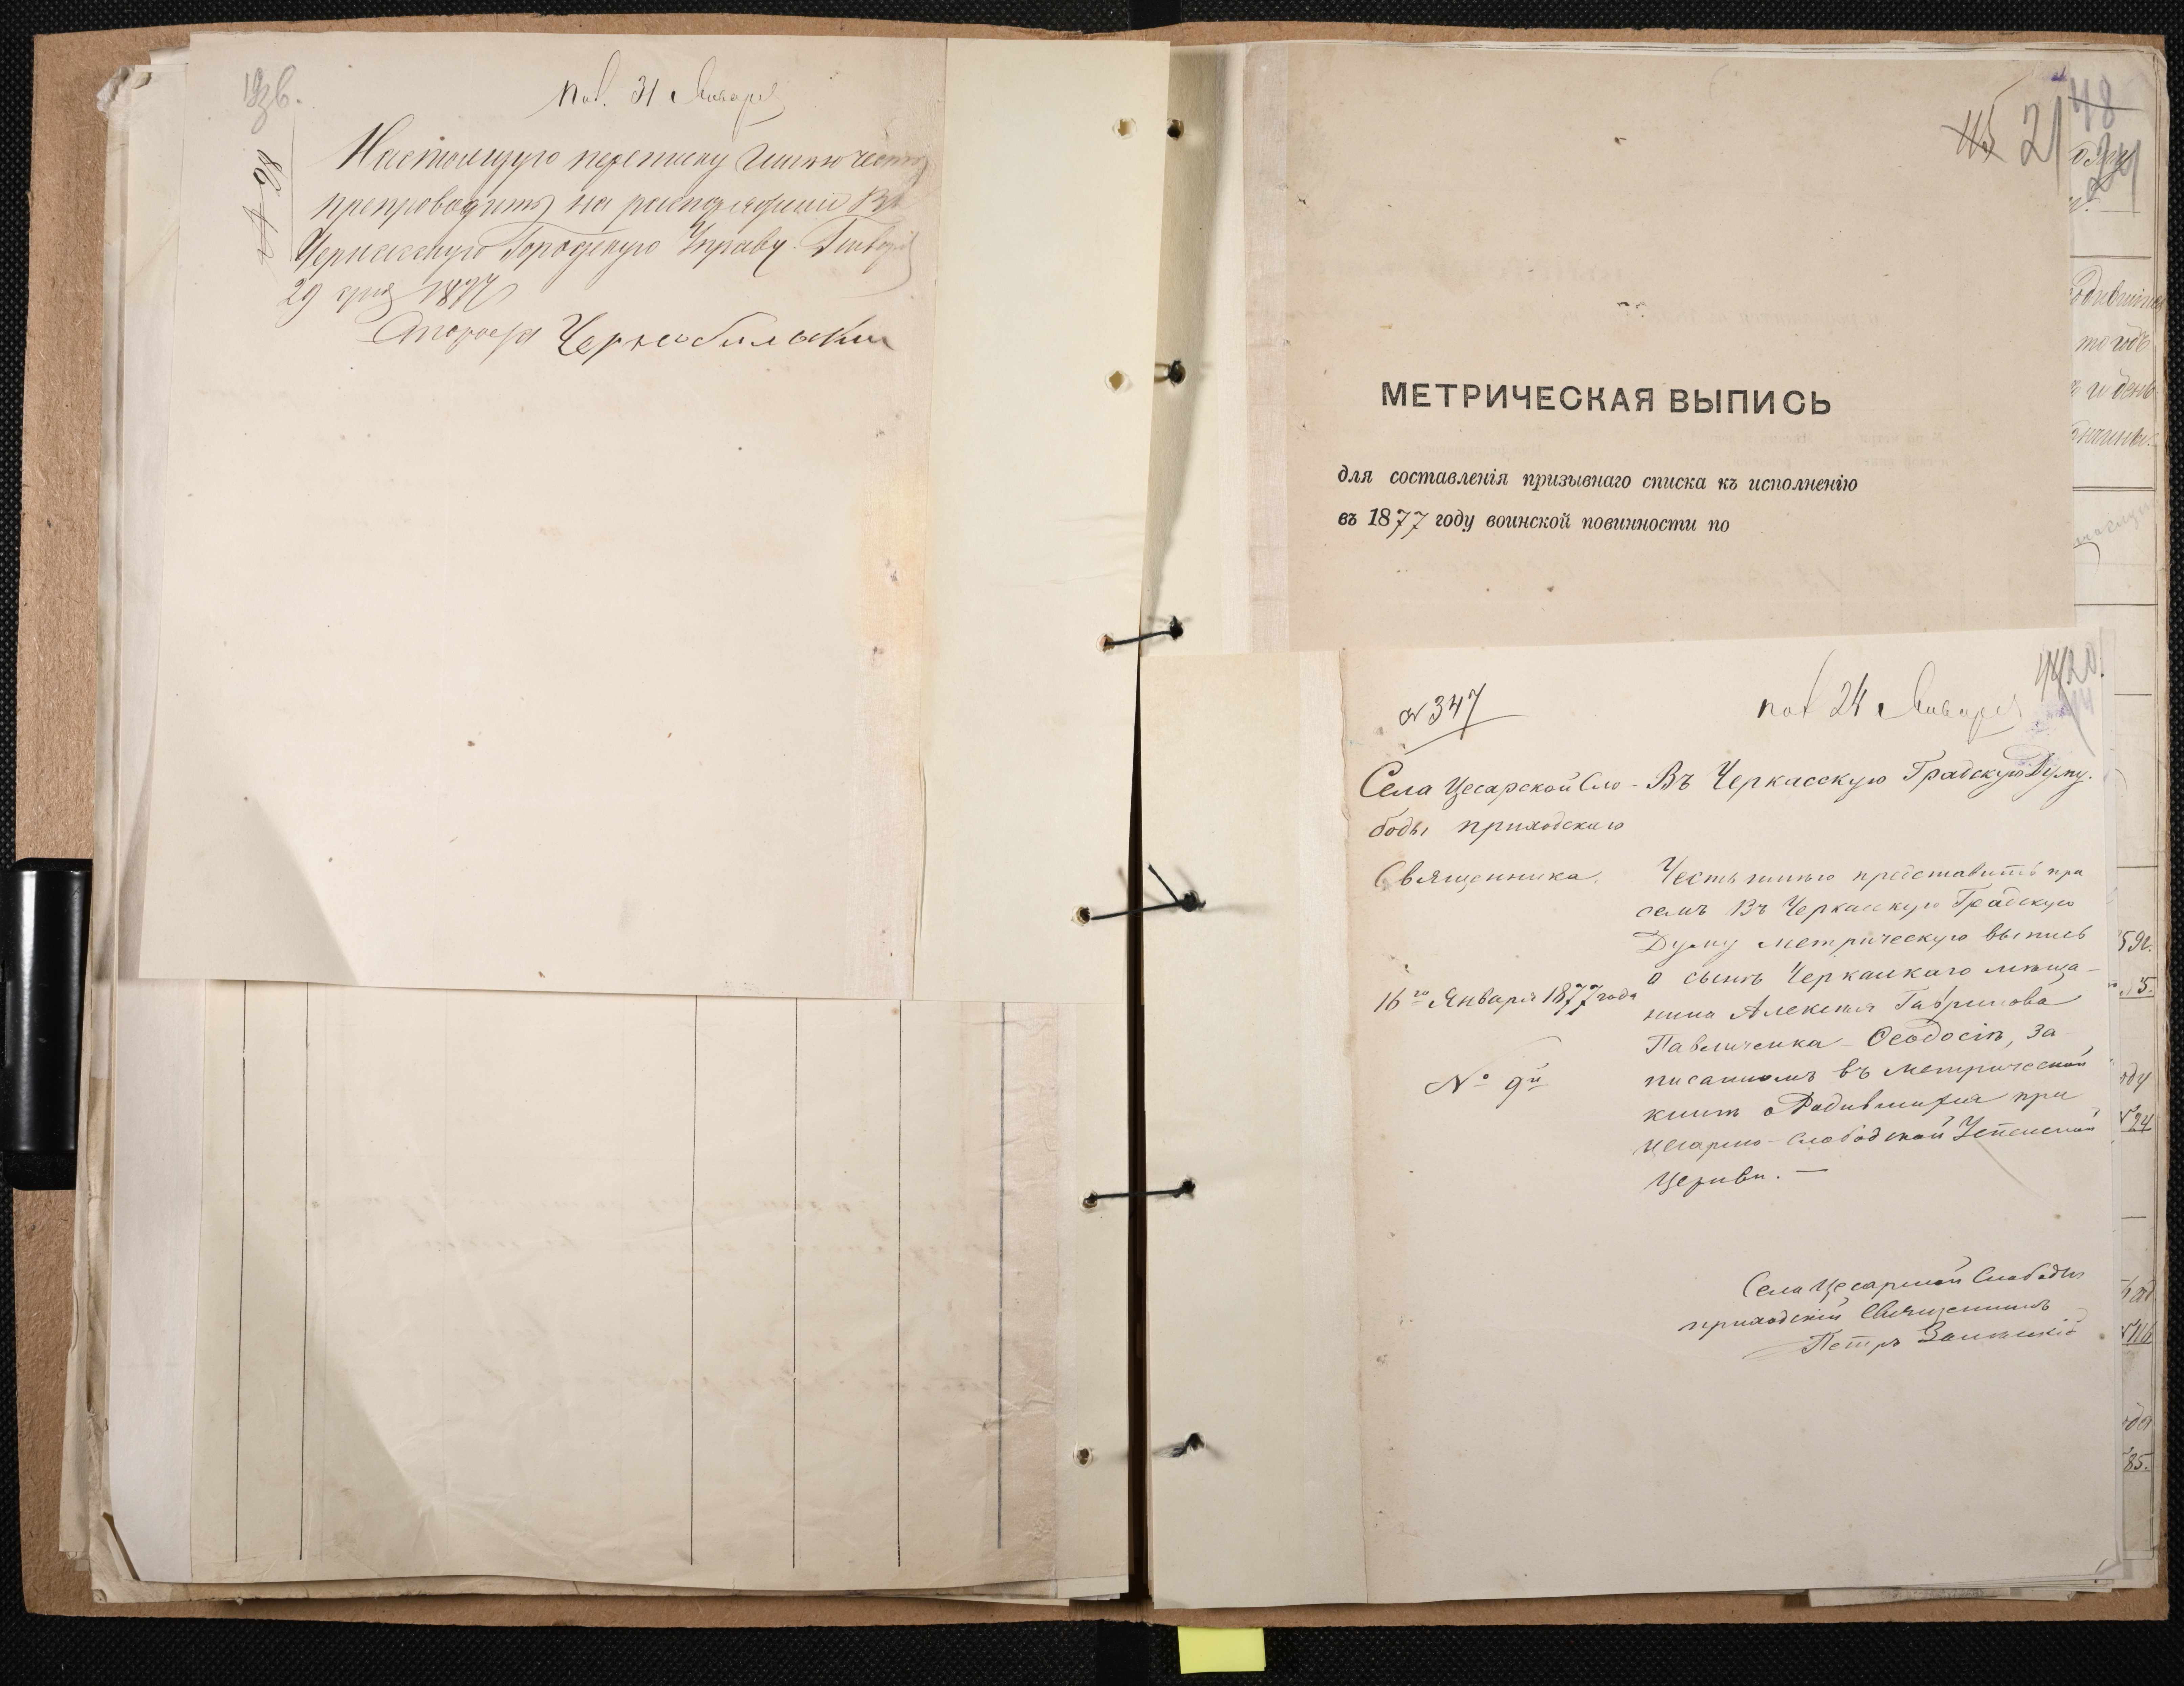 пол. 31 Января
№ 28
Настоящую переписку имею честь
препроводить на распоряжение Въ
Черкасскую Городскую Управу. Января
29 дня 1877
48
115 21
24
МЕТРИЧЕСКАЯ ВЫПИСЬ
для составленія призывнаго списка къ исполненію
въ 1877 году воинской повинности по
№ 347
пол 24 Января
Села Цесарской Сло-
боды приходскаго
Священника.
16го Января 1877 года
№ 9й
Въ Черкасскую Градскую Думу.
Честь имею представить при
семъ Въ Черкасскую Градскую
Думу метрическую выпись
о сынѣ Черкаскаго мѣща-
нина Алексѣя Гаврилова
Павличенка Ѳеодосіѣ, за
писанномъ въ метрической
книгѣ о Родившихся при
Цесарско-Слободской Успенской
Церкви. —
Села Цесарской Слободы
приходскій Священникъ
Петръ